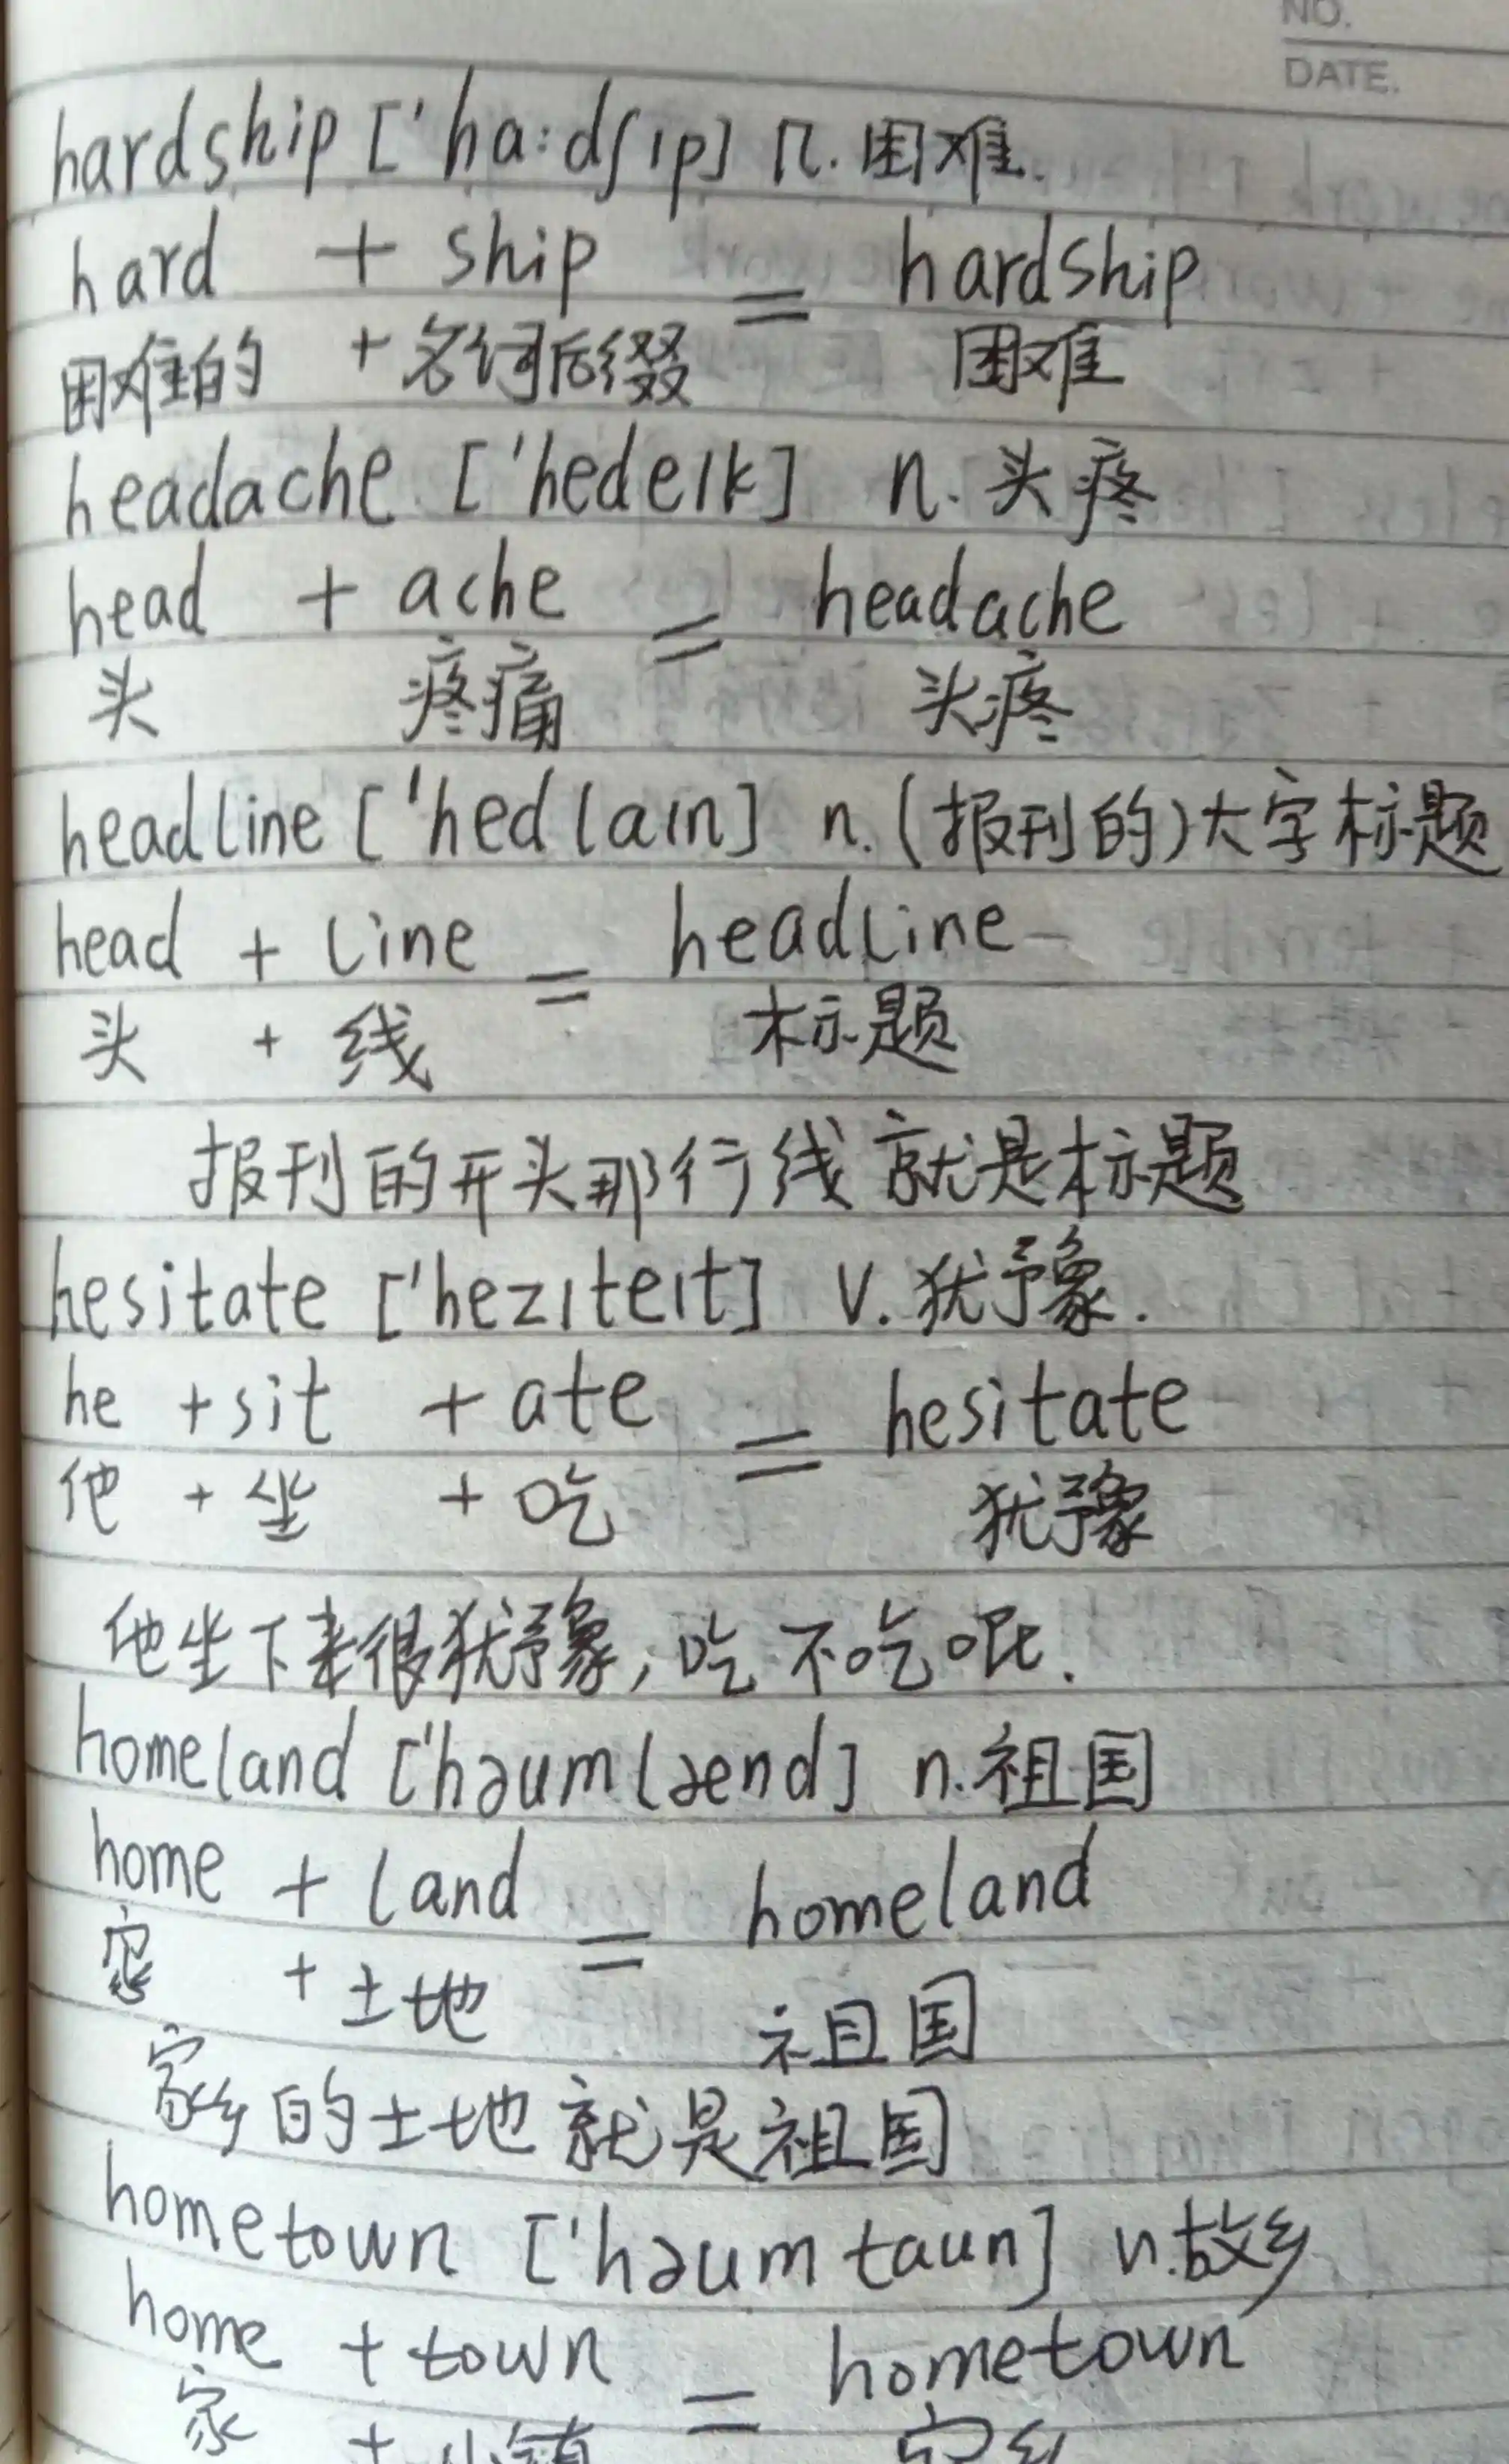 NO.
DATE.
hardship ['ha:dʃɪp] n. 困难.
hard + ship = hardship
困难的 + 名词后缀 困难
headache ['hedeɪk] n. 头疼
head + ache = headache
头 疼痛 头疼
headline ['hedlaɪn] n. (报刊的)大字标题
head + line = headline
头 + 线 标题
报刊的开头那行线就是标题
hesitate ['hezɪteɪt] v. 犹豫.
he + sit + ate = hesitate
他 + 坐 + 吃 犹豫
他坐下来很犹豫, 吃不吃呢.
homeland ['həumlænd] n. 祖国
home + land = homeland
家 + 土地 祖国
家乡的土地就是祖国
hometown ['həumtaun] n. 故乡
home + town = hometown
家 + 小镇 家乡